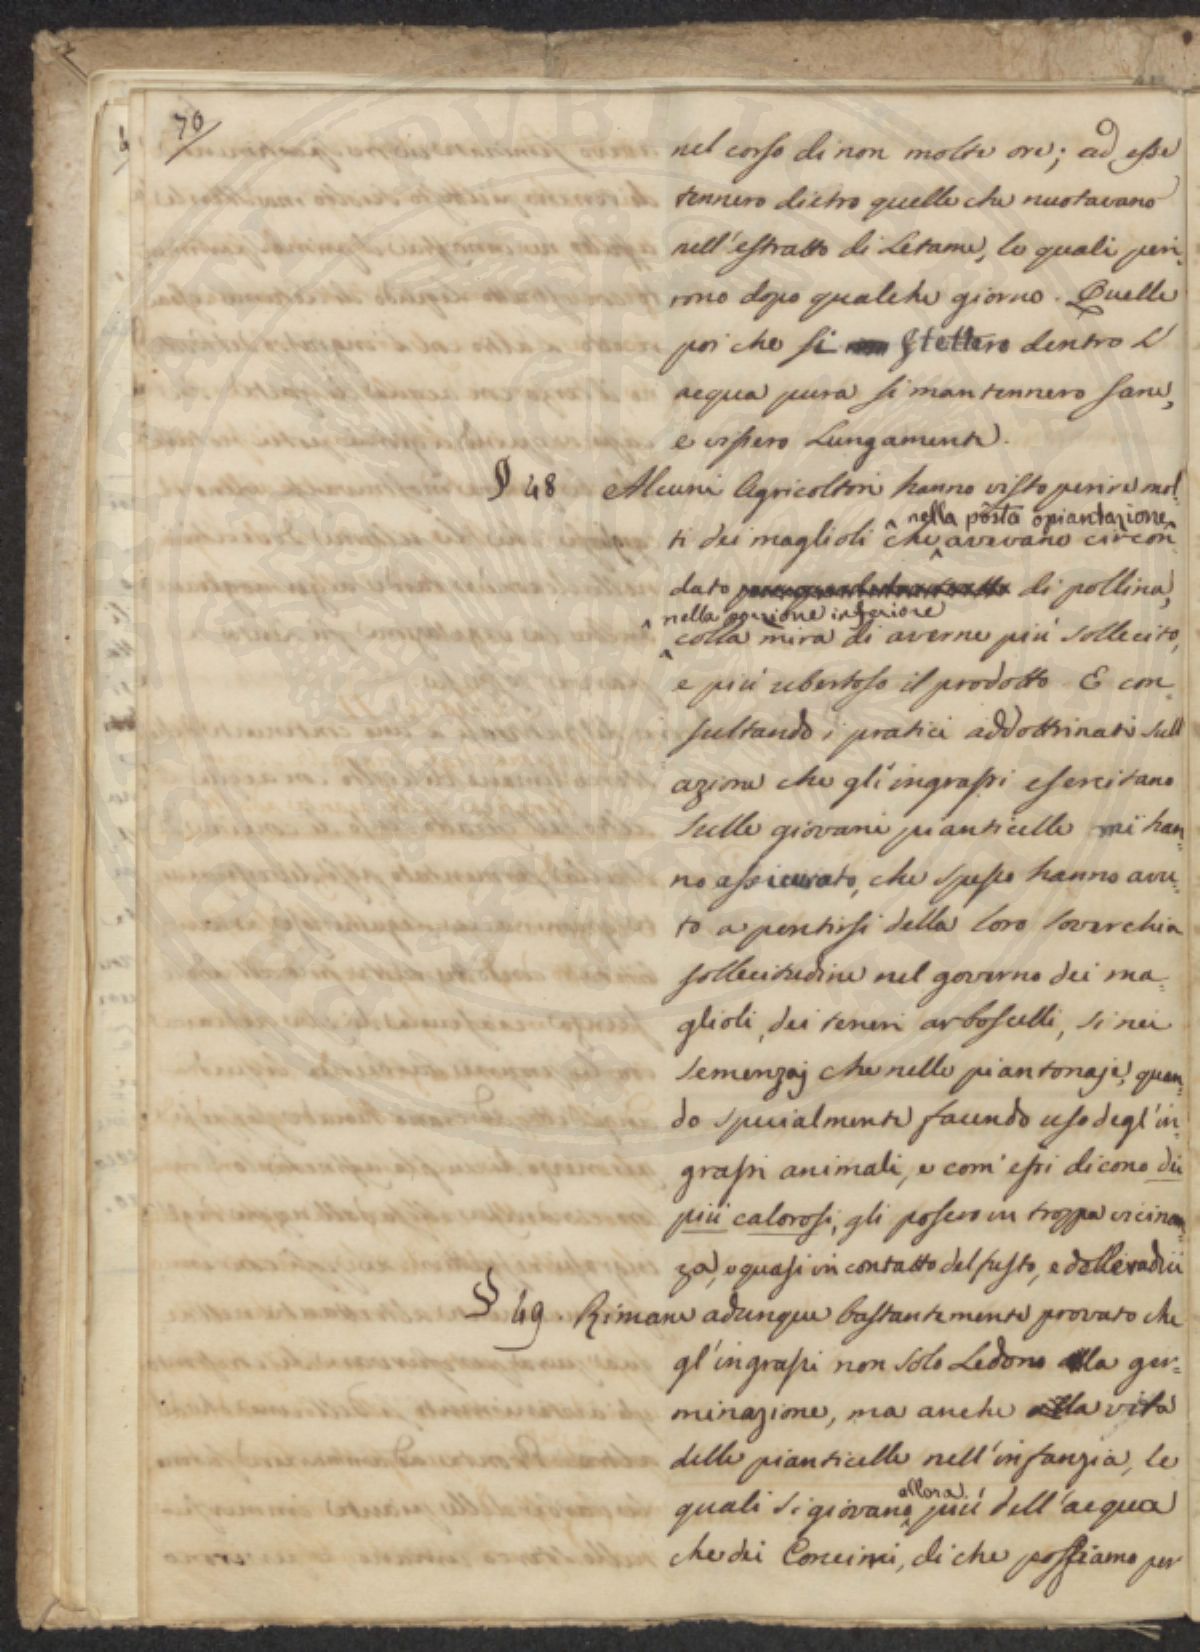 70
nel corso di non molte ore; ad esse
tennero dietro quelle che nuotavano
nell'estratto di Letame, le quali peri-
rono dopo qualche giorno. Quelle
poi che si stettero dentro l'
acqua pura si mantennero sane,
e vissero Lungamente.
§ 48 Alcuni Agricoltori hanno visto perire mol-
nella posta o piantazione
ti dei maglioli che avevano circon-
dato di pollina,
nella porzione inferiore
colla mira di averne più sollecito,
e più ubertoso il prodotto. E con-
sultando i pratici addottrinati sull
azione che gl'ingrassi esercitano
sulle giovani pianticelle mi han-
no assicurato, che spesso hanno avu-
to a pentirsi della loro soverchia
sollecitudine nel governo dei ma-
glioli, dei teneri arboscelli, si nei
semenzaj che nelle piantonaje, quan-
do specialmente facendo uso degl'in-
grassi animali, e com'essi dicono dei
più calorosi, gli posero in troppa vicinan-
za, e quasi in contatto del fusto, e delle radici
§ 49. Rimane adunque bastantemente provato che
gl'ingrassi non solo Ledono alla ger-
minazione, ma anche alla vita
delle pianticelle nell'infanzia, le
allora
quali si giovano più dell'acqua
che dei Concimi, di che possiamo per